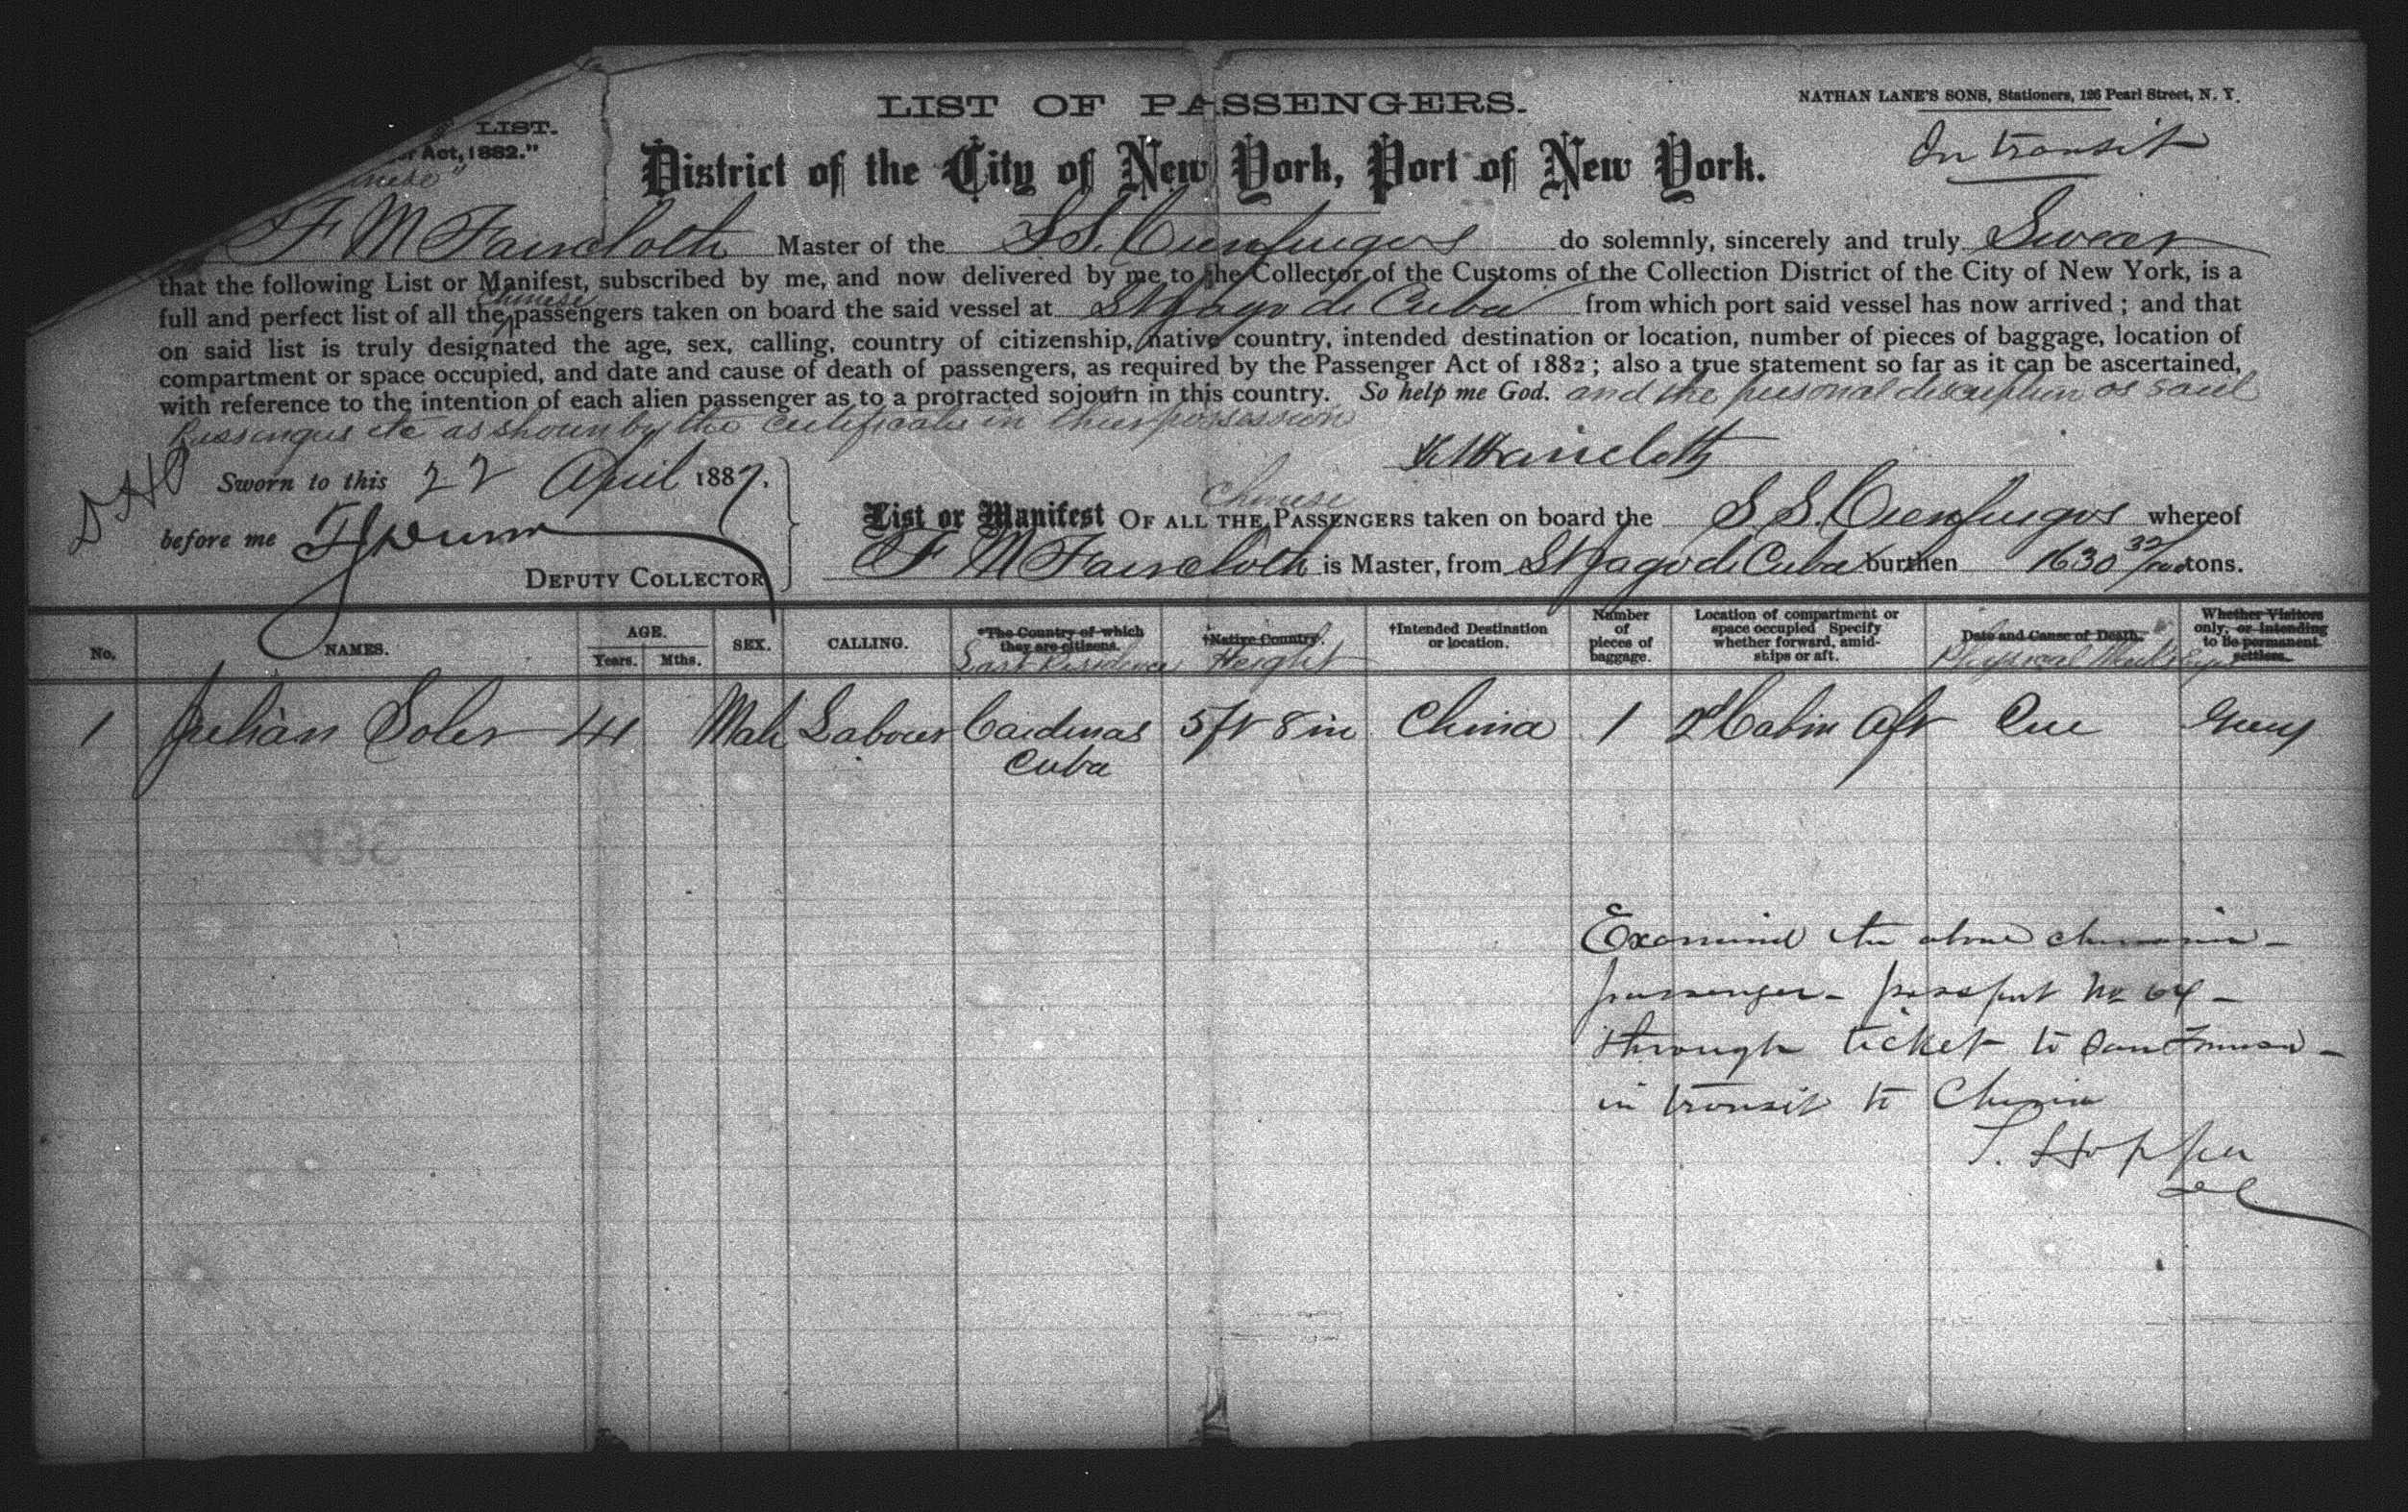 LIST OF PASSENGERS.
NATHAN LANE'S SONS, Stationers, 126 Pearl Street, N. Y.
LIST.
Act, 1882."
In transit
District of the City of New York, Port of New York.
F M Faircloth Master of the S.S. Cienfuegos do solemnly, sincerely and truly Swear
that the following List or Manifest, subscribed by me, and now delivered by me to the Collector of the Customs of the Collection District of the City of New York, is a
full and perfect list of all the Chinese passengers taken on board the said vessel at St Jago de Cuba from which port said vessel has now arrived; and that
on said list is truly designated the age, sex, calling, country of citizenship, native country, intended destination or location, number of pieces of baggage, location of
compartment or space occupied, and date and cause of death of passengers, as required by the Passenger Act of 1882; also a true statement so far as it can be ascertained,
with reference to the intention of each alien passenger as to a protracted sojourn in this country. So help me God. and the personal description of said
Passengers etc as shown by the certificate in their possession
F M Faircloth
Sworn to this 22 April 1887.
before me
DEPUTY COLLECTOR
List or Manifest OF ALL THE Chinese PASSENGERS taken on board the S. S. Cienfuegos whereof
F M Faircloth is Master, from St Jago de Cuba burthen 1630 32/100 tons.
No. NAMES. AGE. Years. Mths. SEX. CALLING. *The Country of which they are citizens. Last Residence †Native Country. Height †Intended Destination or location. Number of pieces of baggage. Location of compartment or space occupied Specify whether forward, amidships or aft. Date and Cause of Death. Physical Marks Whether Visitors only, or intending to be permanent settlers.
1 Julian Soler 41 Male Labourer Cardenas 5 ft 8 in China 1 2d Cabin Aft
Cuba
Examined the above chinese
passenger - passport No 64 -
through ticket to San Francisco -
in transit to China